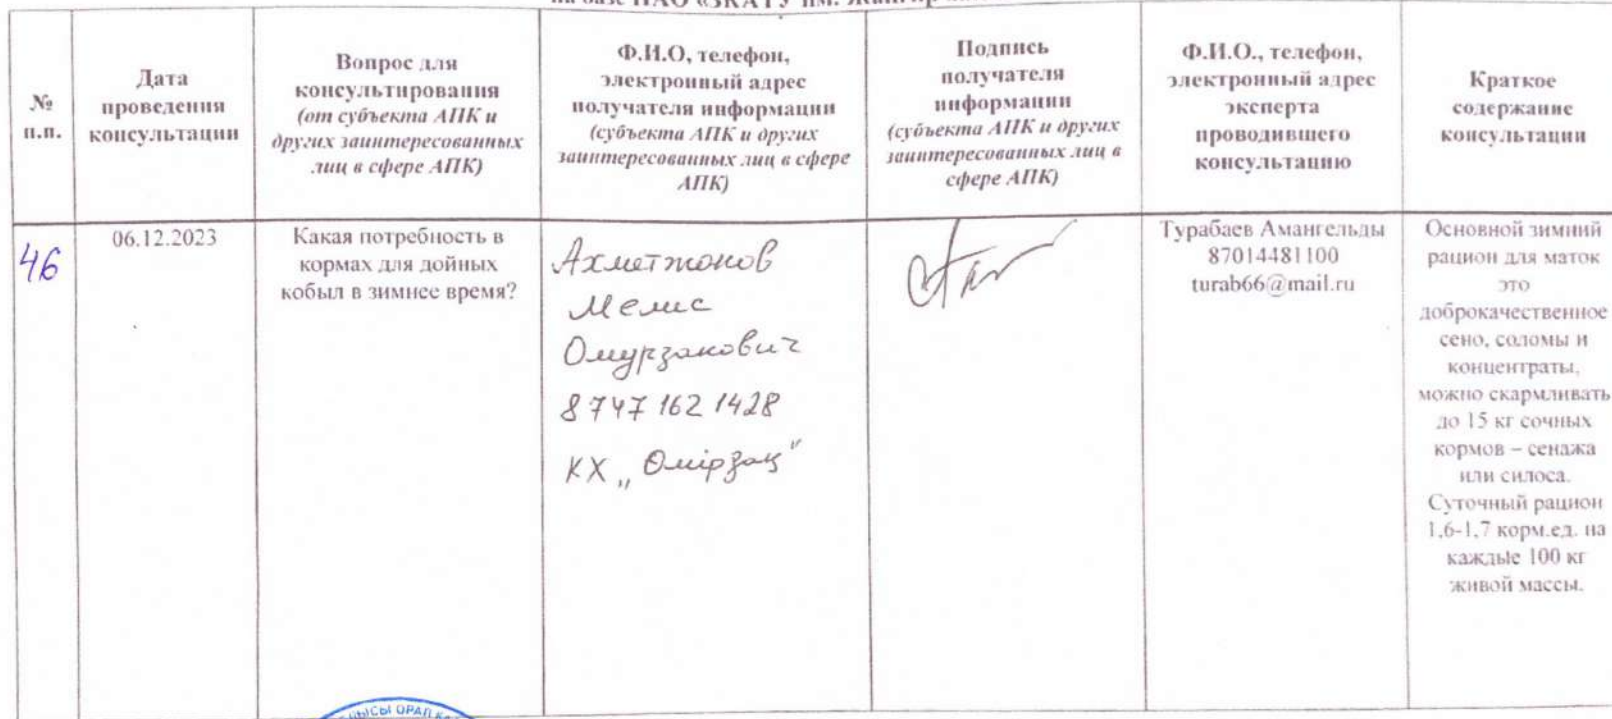 на базе НАО «ЗКАТУ им. Жангир
№
п.п.
Дата
проведения
консультации
Вопрос для
консультирования
(от субъекта АПК и
других заинтересованных
лиц в сфере АПК)
Ф.И.О, телефон,
электронный адрес
получателя информации
(субъекта АПК и других
заинтересованных лиц в сфере
АПК)
Подпись
получателя
информации
(субъекта АПК и других
заинтересованных лиц в
сфере АПК)
Ф.И.О., телефон,
электронный адрес
эксперта
проводившего
консультацию
Краткое
содержание
консультации
46
06.12.2023
Какая потребность в
кормах для дойных
кобыл в зимнее время?
Ахметжонов
Мелис
Омурзакович
8 747 162 1428
КХ „Омірзақ"
Турабаев Амангельды
87014481100
turab66@mail.ru
Основной зимний
рацион для маток
это
доброкачественное
сено, соломы и
концентраты,
можно скармливать
до 15 кг сочных
кормов – сенажа
или силоса.
Суточный рацион
1,6-1,7 корм.ед. на
каждые 100 кг
живой массы.
ОРАЛ